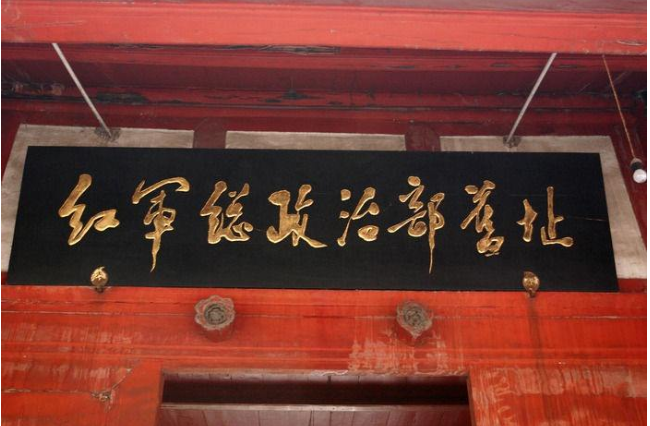 红軍總政治部舊址